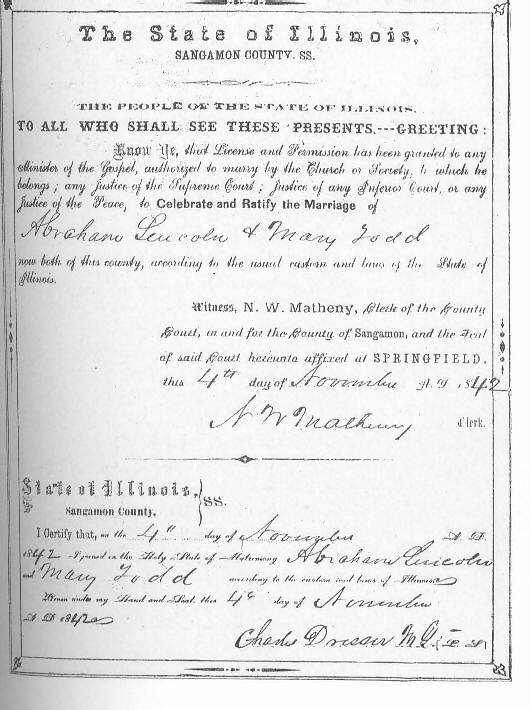 The State of Illinois,
SANGAMON COUNTY. SS.
THE PEOPLE OF THE STATE OF ILLINOIS.
TO ALL WHO SHALL SEE THESE PRESENTS.---GREETING:
Know Ye, that License and Permission has been granted to any
Minister of the Gospel, authorized to marry by the Church or Society, to which he
belongs; any Justice of the Supreme Court; Justice of any Inferior Court, or any
Justice of the Peace, to Celebrate and Ratify the Marriage of
Abraham Lincoln & Mary Todd
now both of this county, according to the usual custom and laws of the State of
Illinois.
Witness, N. W. Matheny, Clerk of the County
Court, in and for the County of Sangamon, and the Seal
of said Court hereunto affixed at SPRINGFIELD,
this 4th day of November A. D. 1842
N W Matheny Clerk.
State of Illinois, } SS.
Sangamon County,
I Certify that, on the 4th day of November A. D.
1842 I joined in the Holy State of Matrimony Abraham Lincoln
and Mary Todd according to the custom and laws of Illinois
Given under my Hand and Seal, this 4th day of November
A. D. 1842
Charles Dresser